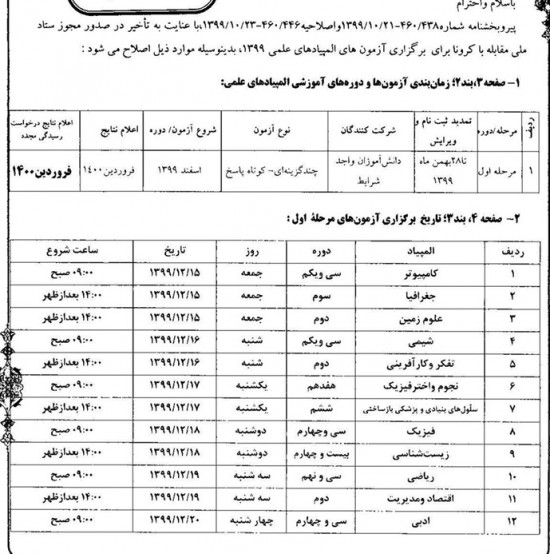 باسلام واحترام
پیروبخشنامه شماره ۴۶۰/۴۳۸-۱۳۹۹/۱۰/۲۱واصلاحیه۴۶۰/۴۴۶-۱۳۹۹/۱۰/۲۳،با عنایت به تأخیر در صدور مجوز ستاد
ملی مقابله با کرونا برای برگزاری آزمون های المپیادهای علمی ۱۳۹۹، بدینوسیله موارد ذیل اصلاح می شود :
۱- صفحه۳،بند۲؛ زمان‌بندی آزمون‌ها و دوره‌های آموزشی المپیادهای علمی:
ردیف مرحله/دوره تمدید ثبت نام و ویرایش شرکت کنندگان نوع آزمون شروع آزمون/ دوره اعلام نتایج اعلام نتایج درخواست رسیدگی مجدد
۱ مرحله اول تا۲۸بهمن ماه ۱۳۹۹ دانش‌آموزان واجد شرایط چندگزینه‌ای- کوتاه پاسخ اسفند ۱۳۹۹ فروردین۱۴۰۰ فروردین۱۴۰۰
۲- صفحه ۴، بند۳؛ تاریخ برگزاری آزمون‌های مرحلۀ اول :
ردیف المپیاد دوره روز تاریخ ساعت شروع
۱ کامپیوتر سی ویکم جمعه ۱۳۹۹/۱۲/۱۵ ۰۹:۰۰ صبح
۲ جغرافیا سوم جمعه ۱۳۹۹/۱۲/۱۵ ۱۴:۰۰ بعدازظهر
۳ علوم زمین دوم جمعه ۱۳۹۹/۱۲/۱۵ ۱۴:۰۰ بعدازظهر
۴ شیمی سی ویکم شنبه ۱۳۹۹/۱۲/۱۶ ۰۹:۰۰ صبح
۵ تفکر وکارآفرینی دوم شنبه ۱۳۹۹/۱۲/۱۶ ۱۴:۰۰ بعدازظهر
۶ نجوم واخترفیزیک هفدهم یکشنبه ۱۳۹۹/۱۲/۱۷ ۰۹:۰۰ صبح
۷ سلول‌های بنیادی و پزشکی بازساختی ششم یکشنبه ۱۳۹۹/۱۲/۱۷ ۱۴:۰۰ بعدازظهر
۸ فیزیک سی وچهارم دوشنبه ۱۳۹۹/۱۲/۱۸ ۰۹:۰۰ صبح
۹ زیست‌شناسی بیست و چهارم دوشنبه ۱۳۹۹/۱۲/۱۸ ۱۴:۰۰ بعدازظهر
۱۰ ریاضی سی و نهم سه شنبه ۱۳۹۹/۱۲/۱۹ ۰۹:۰۰ صبح
۱۱ اقتصاد ومدیریت دوم سه شنبه ۱۳۹۹/۱۲/۱۹ ۱۴:۰۰ بعدازظهر
۱۲ ادبی سی و چهارم چهار شنبه ۱۳۹۹/۱۲/۲۰ ۰۹:۰۰ صبح